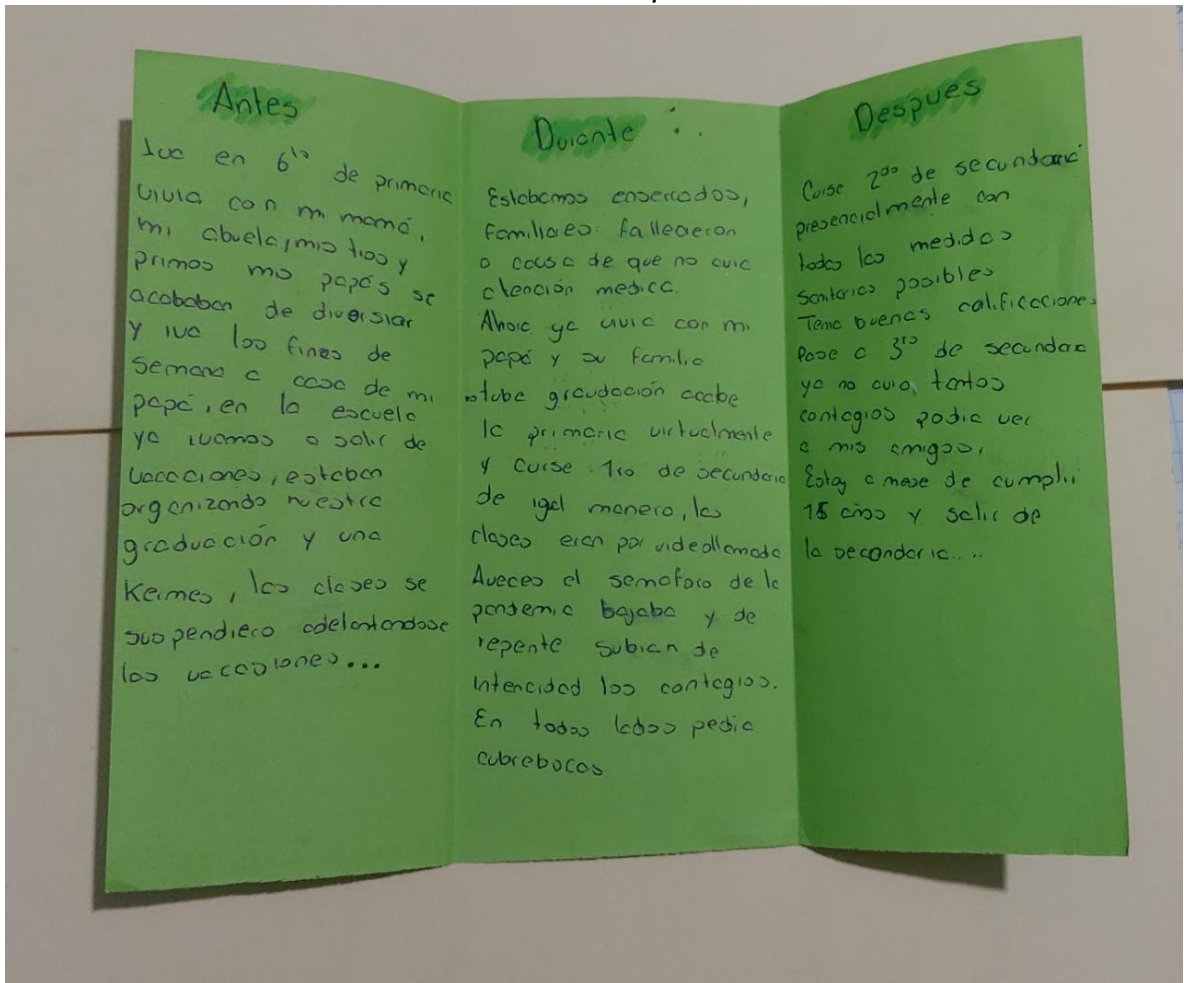 Antes
iva en 6to de primaria
vivia con mi mamá,
mi abuela, mis tios y
primos mis papás se
acababan de diversiar
y iva los fines de
semana a casa de mi
papá, en la escuela
ya ivamos a salir de
vacaciones, estaban
organizando nuestra
graduación y una
Kermes, las clases se
suspendiero adelantandose
las vacaciones...
Durante
Estabamos enserrados,
familiares fallecieron
a causa de que no avia
atención medica.
Ahora ya vivia con mi
papá y su familia
tube graudación acabe
la primaria virtualmente
y curse 1ro de secundaria
de igal manera, las
clases eran por videollamada
Aveces el semaforo de la
pandemia bajaba y de
repente subian de
intencidad los contagios.
En todos lados pedia
cubrebocas
Despues
Curse 2do de secundaria
presencialmente con
todas las medidas
sanitarias posibles
Tenia buenas calificaciones
Pase a 3ro de secundaria
ya no avia tantos
contagios podia ver
a mis amigos,
Estoy a mese de cumplir
15 años y salir de
la secundaria....